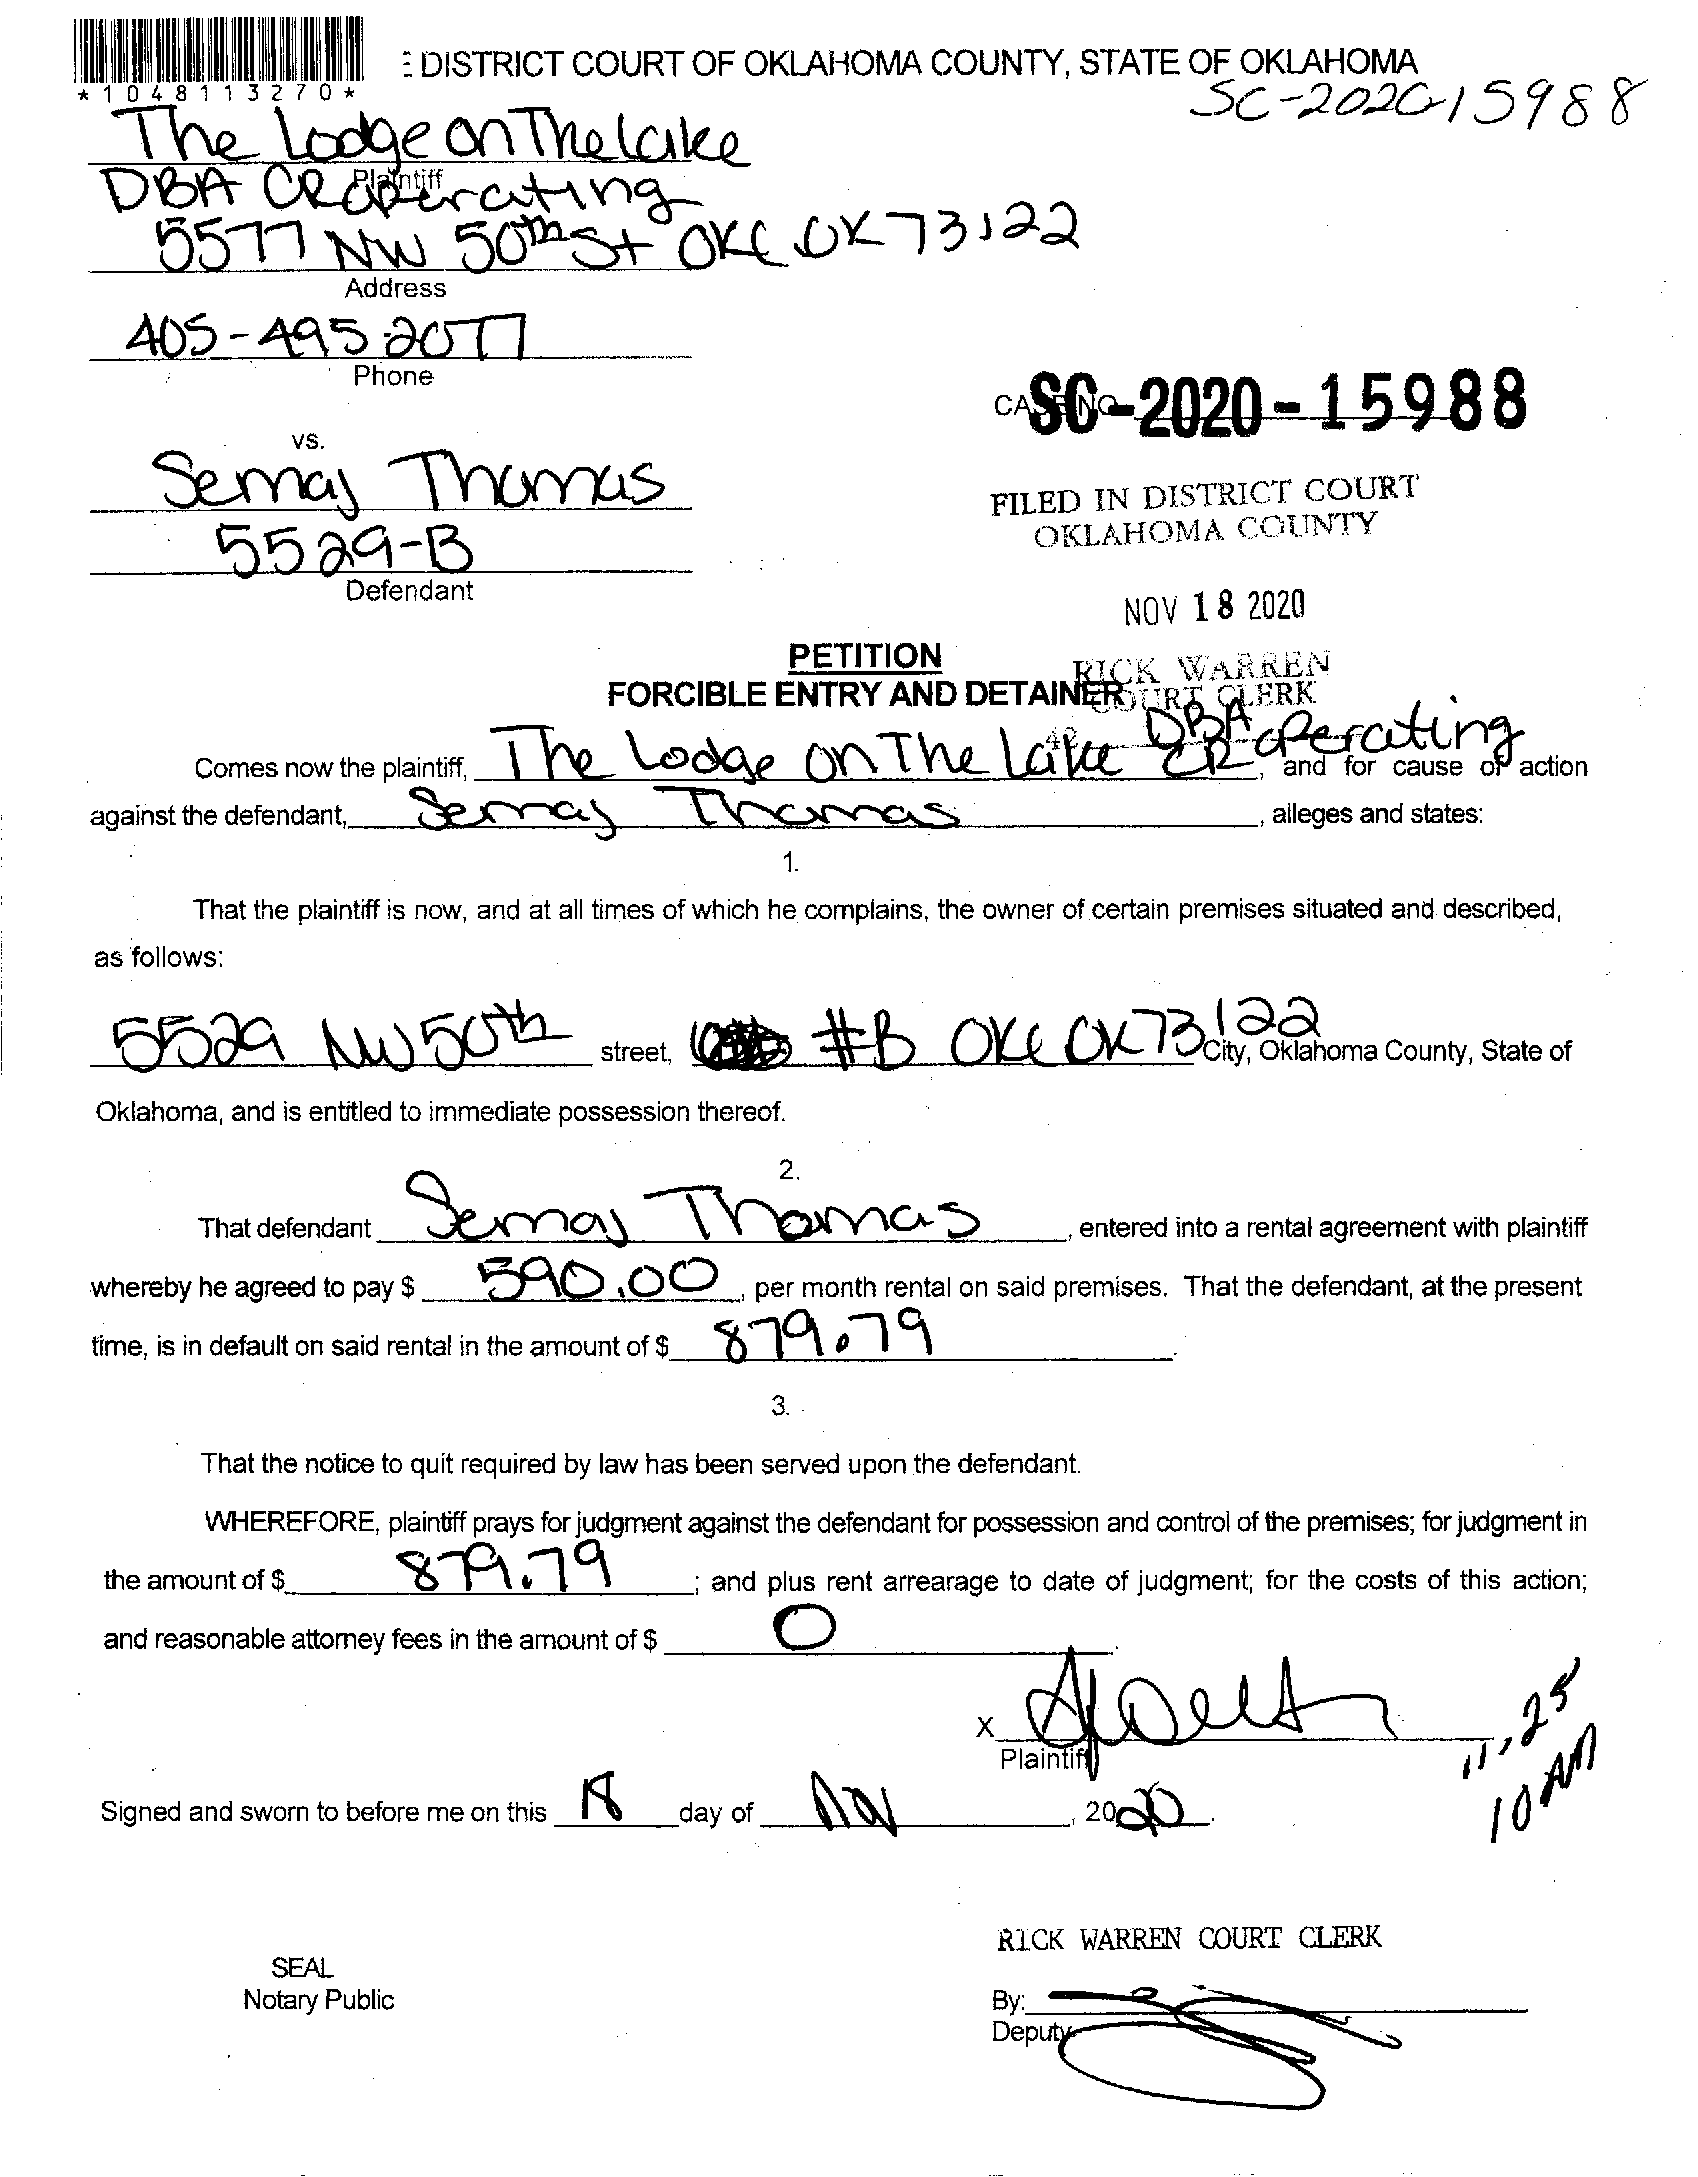 DISTRICT COURT OF OKLAHOMA COUNTY, STATE OF OKLAHOMA
*1048113270*
SC-2020-15988
The Lodge on The Lake
Plaintiff
DBA CR Operating
5577 NW 50th St OKC OK 73122
Address
405-495-2077
Phone
CASE NO. SC-2020-15988
vs.
Semaj Thomas
FILED IN DISTRICT COURT
OKLAHOMA COUNTY
5529-B
Defendant
NOV 18 2020
PETITION
RICK WARREN
FORCIBLE ENTRY AND DETAINER
COURT CLERK
Comes now the plaintiff, The Lodge on The Lake DBA CR operating, and for cause of action
against the defendant, Semaj Thomas, alleges and states:
1.
That the plaintiff is now, and at all times of which he complains, the owner of certain premises situated and described,
as follows:
5529 NW 50th street, #B OKC OK 73122 City, Oklahoma County, State of
Oklahoma, and is entitled to immediate possession thereof.
2.
That defendant Semaj Thomas, entered into a rental agreement with plaintiff
whereby he agreed to pay $ 590.00, per month rental on said premises. That the defendant, at the present
time, is in default on said rental in the amount of $ 879.79.
3.
That the notice to quit required by law has been served upon the defendant.
WHEREFORE, plaintiff prays for judgment against the defendant for possession and control of the premises; for judgment in
the amount of $ 879.79; and plus rent arrearage to date of judgment; for the costs of this action;
and reasonable attorney fees in the amount of $ 0.
X
Plaintiff
11,25
10 AM
Signed and sworn to before me on this 18 day of Nov, 2020.
RICK WARREN COURT CLERK
SEAL
Notary Public
By:
Deputy